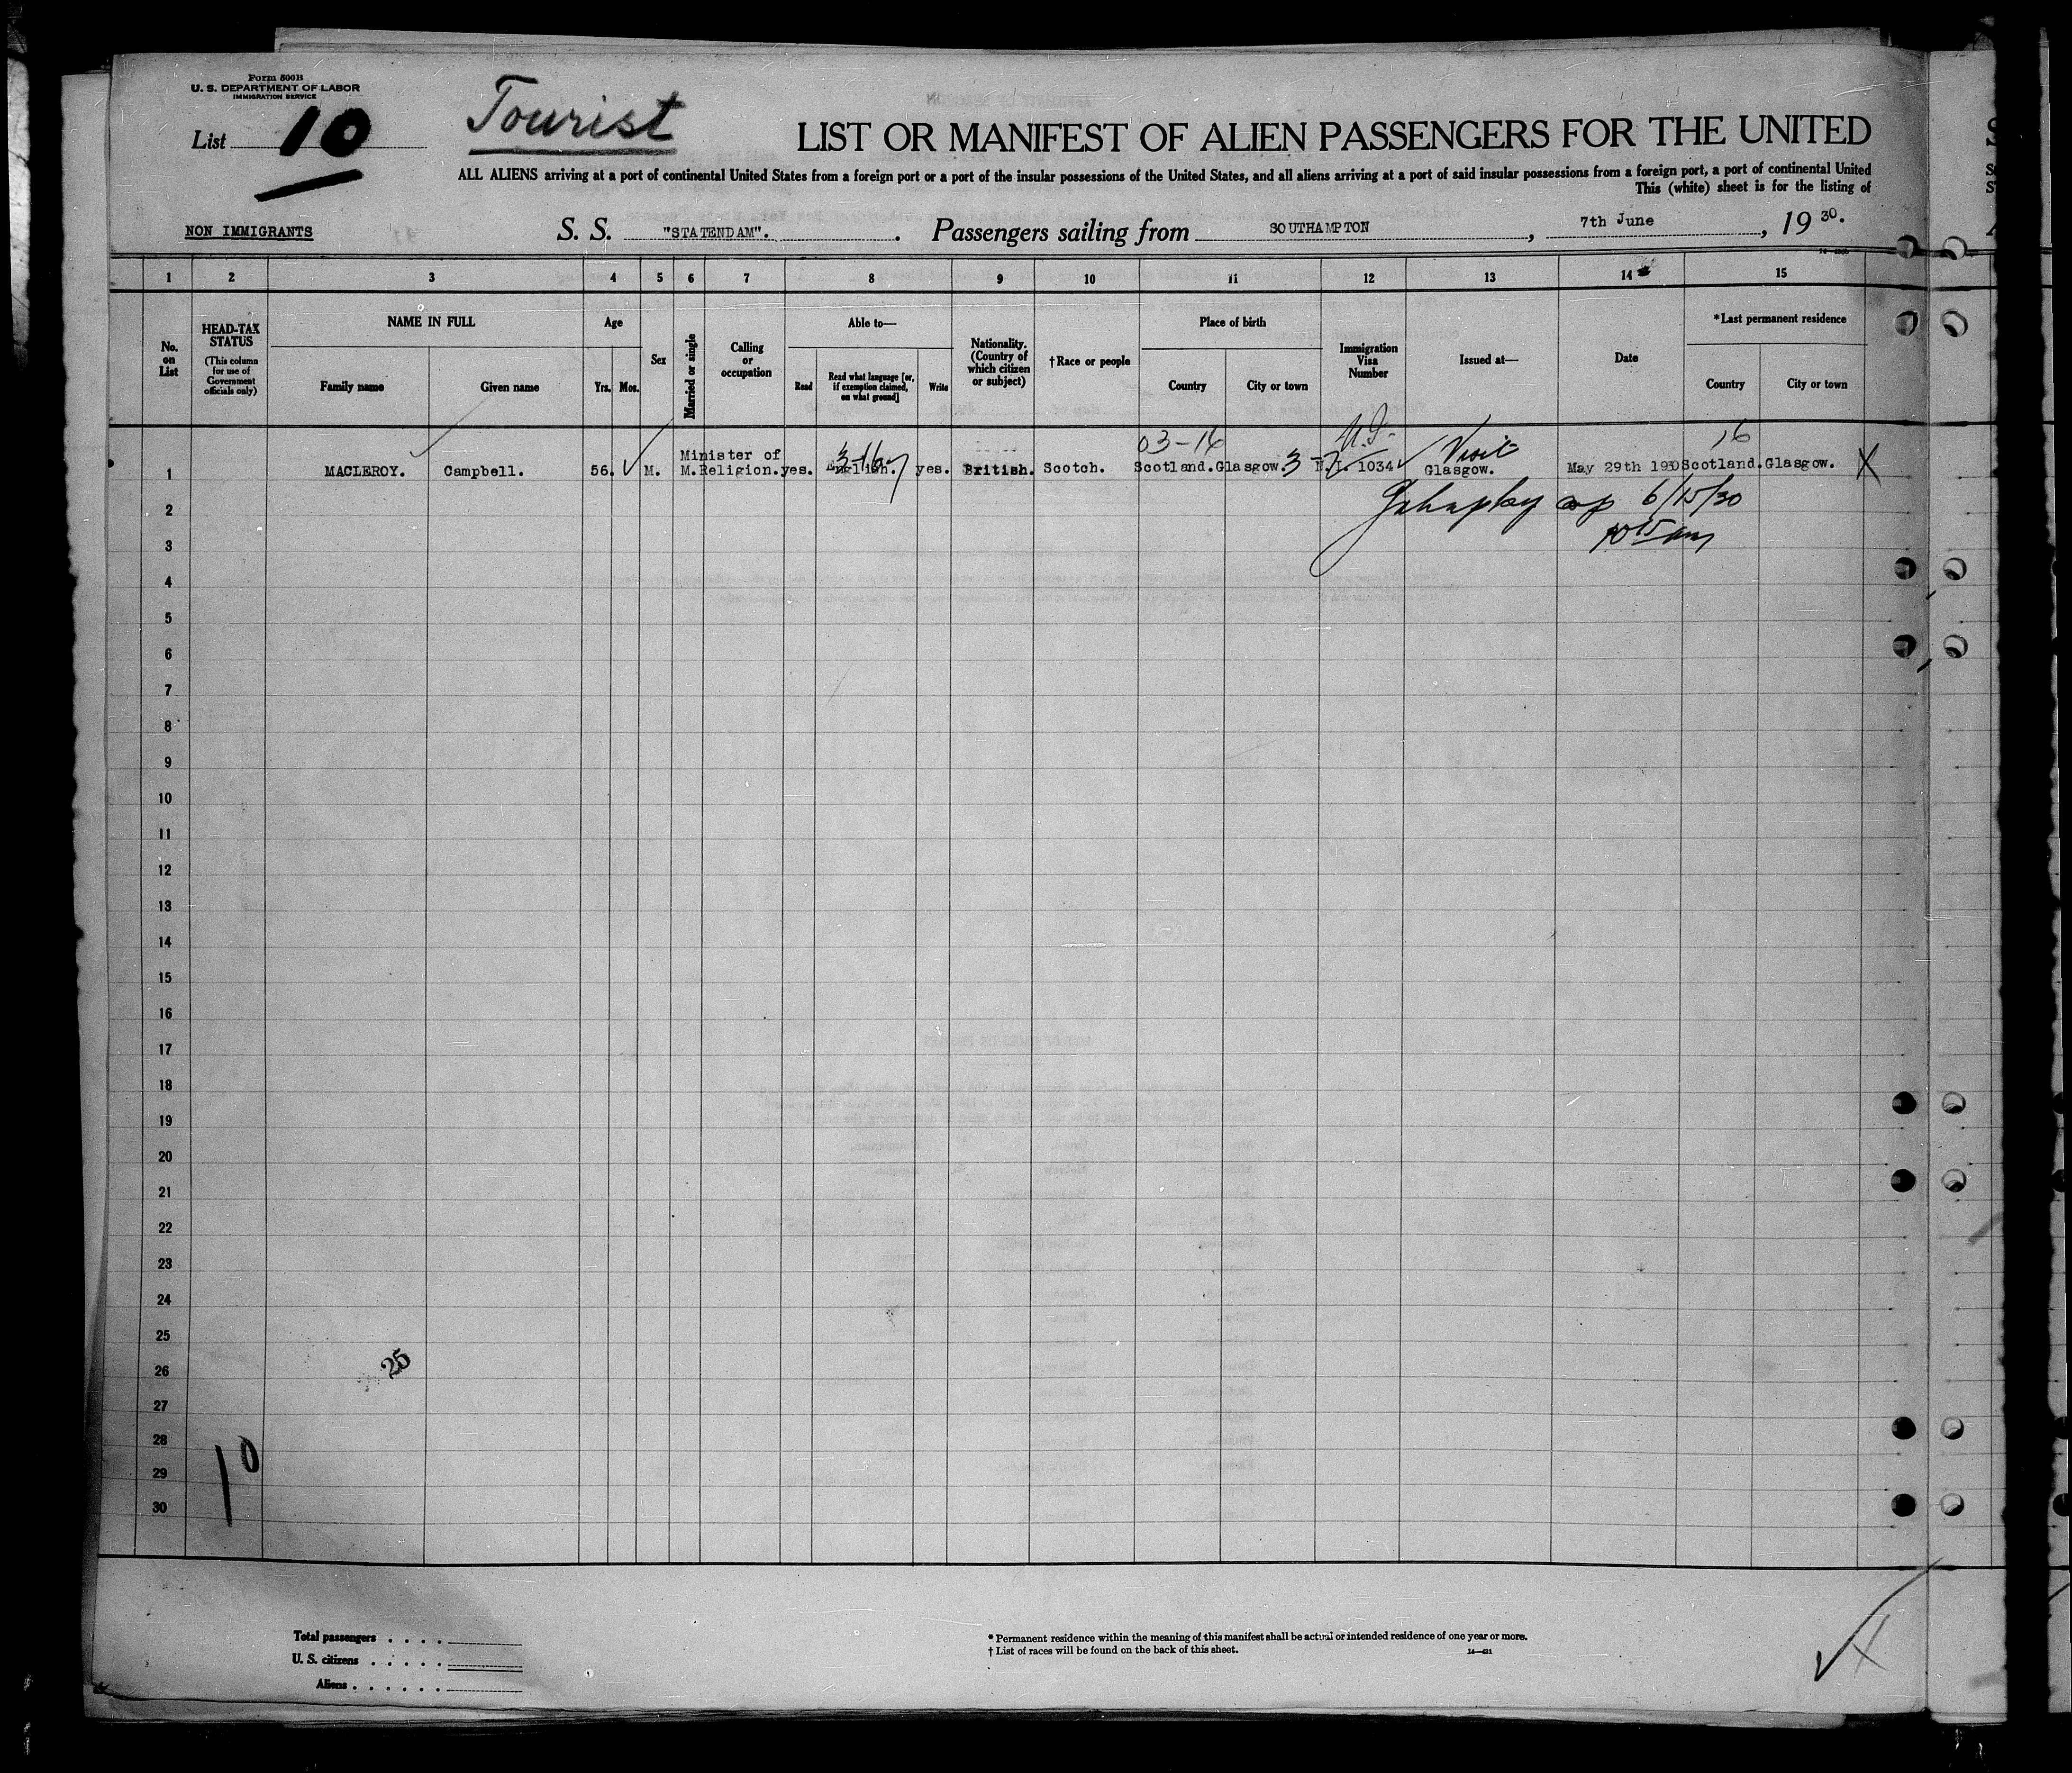 Form 500B
U. S. DEPARTMENT OF LABOR
IMMIGRATION SERVICE
List 10
Tourist
LIST OR MANIFEST OF ALIEN PASSENGERS FOR THE UNITED
ALL ALIENS arriving at a port of continental United States from a foreign port or a port of the insular possessions of the United States, and all aliens arriving at a port of said insular possessions from a foreign port, a port of continental United
This (white) sheet is for the listing of
NON IMMIGRANTS
S. S. "STATENDAM". . Passengers sailing from SOUTHAMPTON, 7th June, 19 30.
1 2 3 4 5 6 7 8 9 10 11 12 13 14 15
No. on List
HEAD-TAX STATUS
(This column for use of Government officials only)
NAME IN FULL
Family name Given name
Age
Yrs. Mos.
Sex
Married or single
Calling or occupation
Able to—
Read
Read what language [or, if exemption claimed, on what ground]
Write
Nationality. (Country of which citizen or subject)
†Race or people
Place of birth
Country City or town
Immigration Visa Number
Issued at—
Date
*Last permanent residence
Country City or town
03-16 Visit 16
1 MACLEROY. Campbell. 56. M. M. Minister of Religion. yes. English. yes. British. Scotch. Scotland. Glasgow. 3 1034 Glasgow. May 29th 1930 Scotland. Glasgow. X
3-16
2
6/15/30
3
10 15 am
4
5
6
7
8
9
10
11
12
13
14
15
16
17
18
19
20
21
22
23
24
25
25
26
27
28
10
29
30
Total passengers
U. S. citizens
Aliens
* Permanent residence within the meaning of this manifest shall be actual or intended residence of one year or more.
† List of races will be found on the back of this sheet.